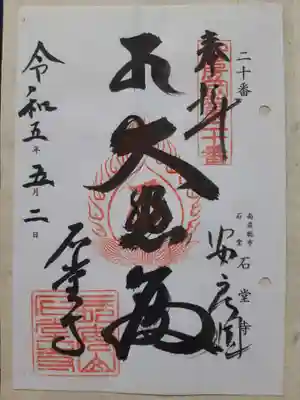 二十番
奉拝
安房国
南房総市
石堂
石堂寺
大悲殿
令和五年五月二日
石堂寺